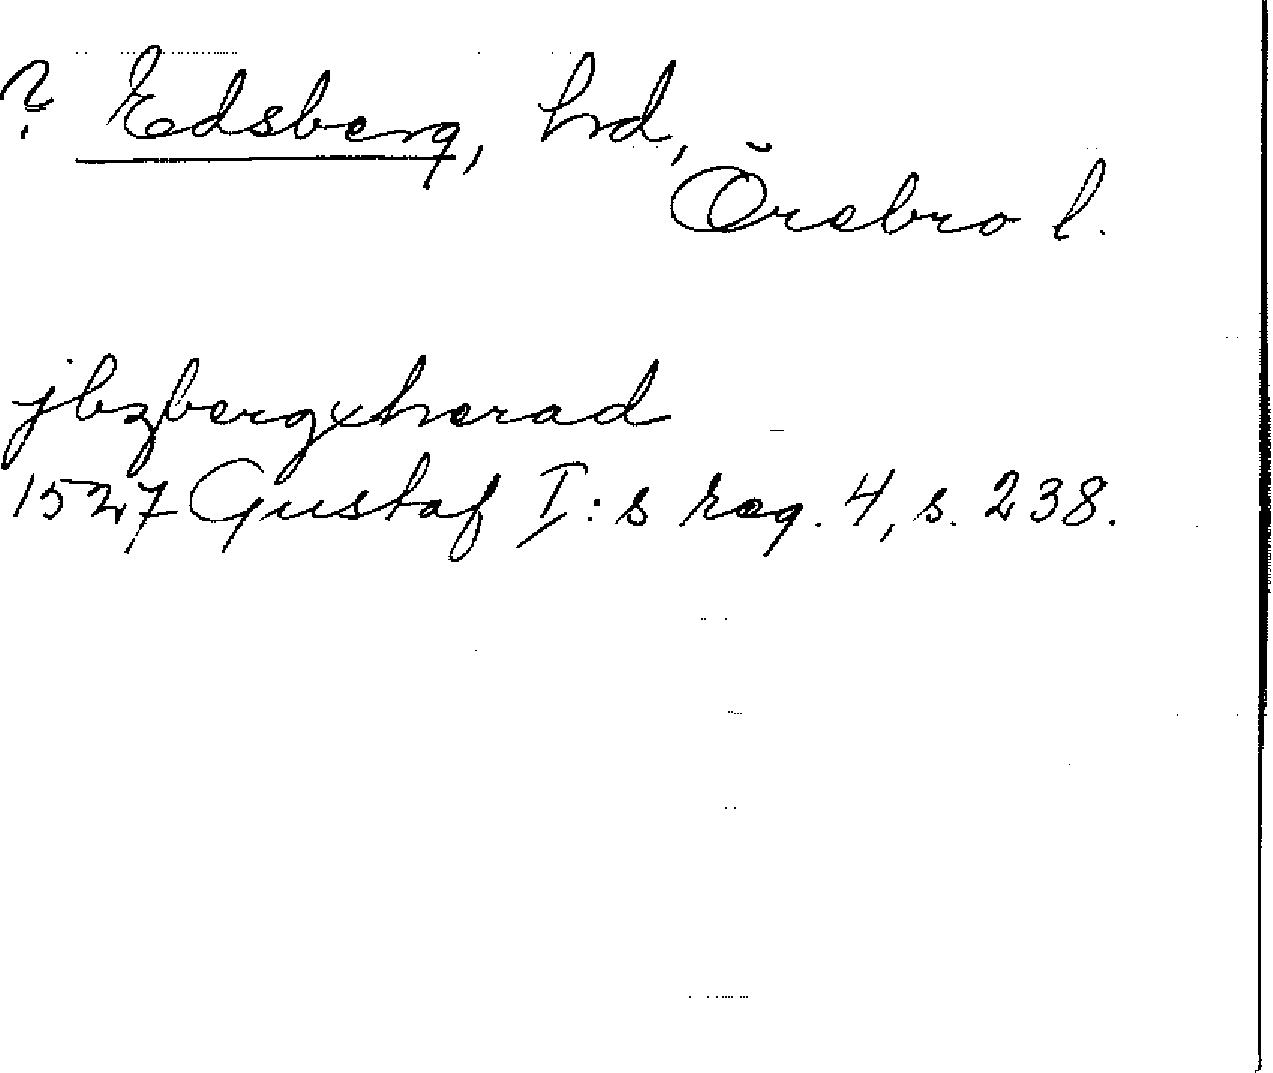 ? Edsberg, hd,
Örebro l.
jbzbergxherad
1527 Gustaf I:s reg. 4, s. 238.